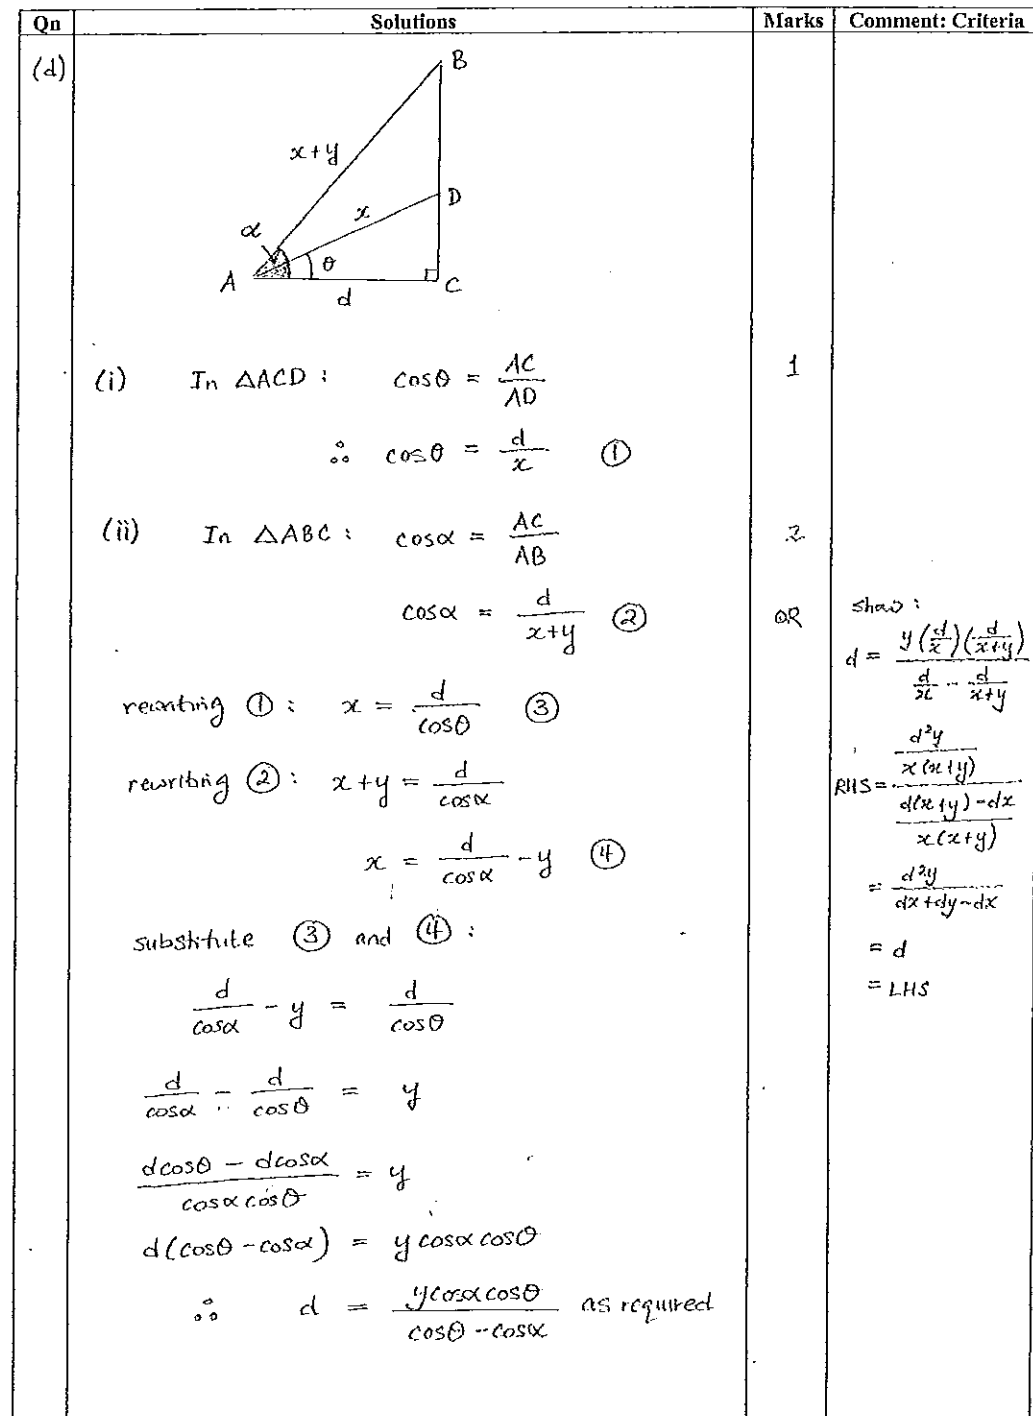 Qn Solutions Marks Comment: Criteria
(d)
B
x+y
D
x
α
θ
A
C
d
(i) In △ACD : cosθ = AC/AD 1
∴ cosθ = d/x ①
(ii) In △ABC : cosα = AC/AB 2
cosα = d/(x+y) ② OR
rewriting ① : x = d/cosθ ③
rewriting ② : x+y = d/cosα
x = d/cosα - y ④
substitute ③ and ④ :
d/cosα - y = d/cosθ
d/cosα - d/cosθ = y
(dcosθ - dcosα)/(cosα cosθ) = y
d(cosθ - cosα) = y cosα cosθ
∴ d = (ycosα cosθ)/(cosθ - cosα) as required
show :
d = (y(d/x)(d/(x+y)))/(d/x - d/(x+y))
RHS = (d²y/(x(x+y)))/((d(x+y) - dx)/(x(x+y)))
= d²y/(dx+dy-dx)
= d
= LHS